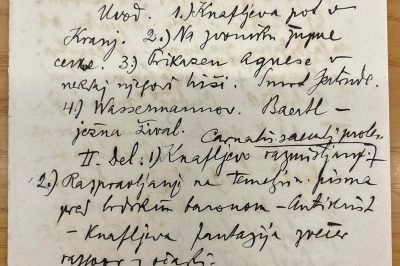 Uvod. 1.) Knafljeva pot v
Kranj. 2.) Na zvoniku župne
cerkve. 3.) Prikazen Agnese v
nekdaj njegovi hiši. Smrt Gertrude.
4.) Wassermannov. Baertl –
jezna žival.
Carnalis
II. Del: 1) Knafljevo razmišljanje
2.) Razpravljanje na Temeljiu pisma
pred Brdskim baronom – Antikrist
– Knafljeva fantazija zvečer
razgovor z